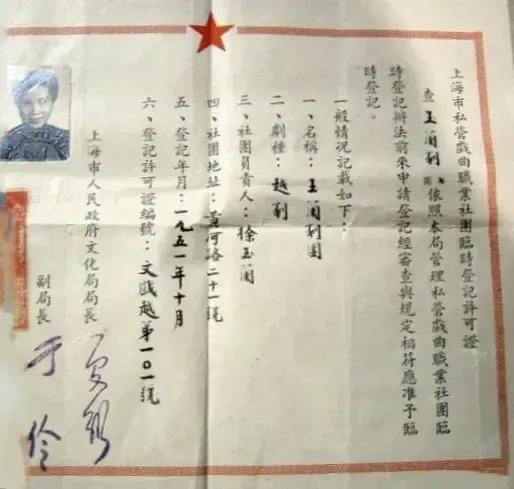 上海市私营戲曲職業社團臨時登記許可證
查玉蘭劇團依照本局管理私营戲曲職業社團臨
時登記辦法前來申請登記經審查與規定相符應准予臨
時登記。
一般情况記載如下：
一、名稱：玉蘭劇團
二、劇種：越劇
三、社團負責人：徐玉蘭
四、社團地址：黃河路二十一號
五、登記年月：一九五一年十月
六、登記許可證編號：文戲越第一〇一號
上海市人民政府文化局局長
副局長 于伶